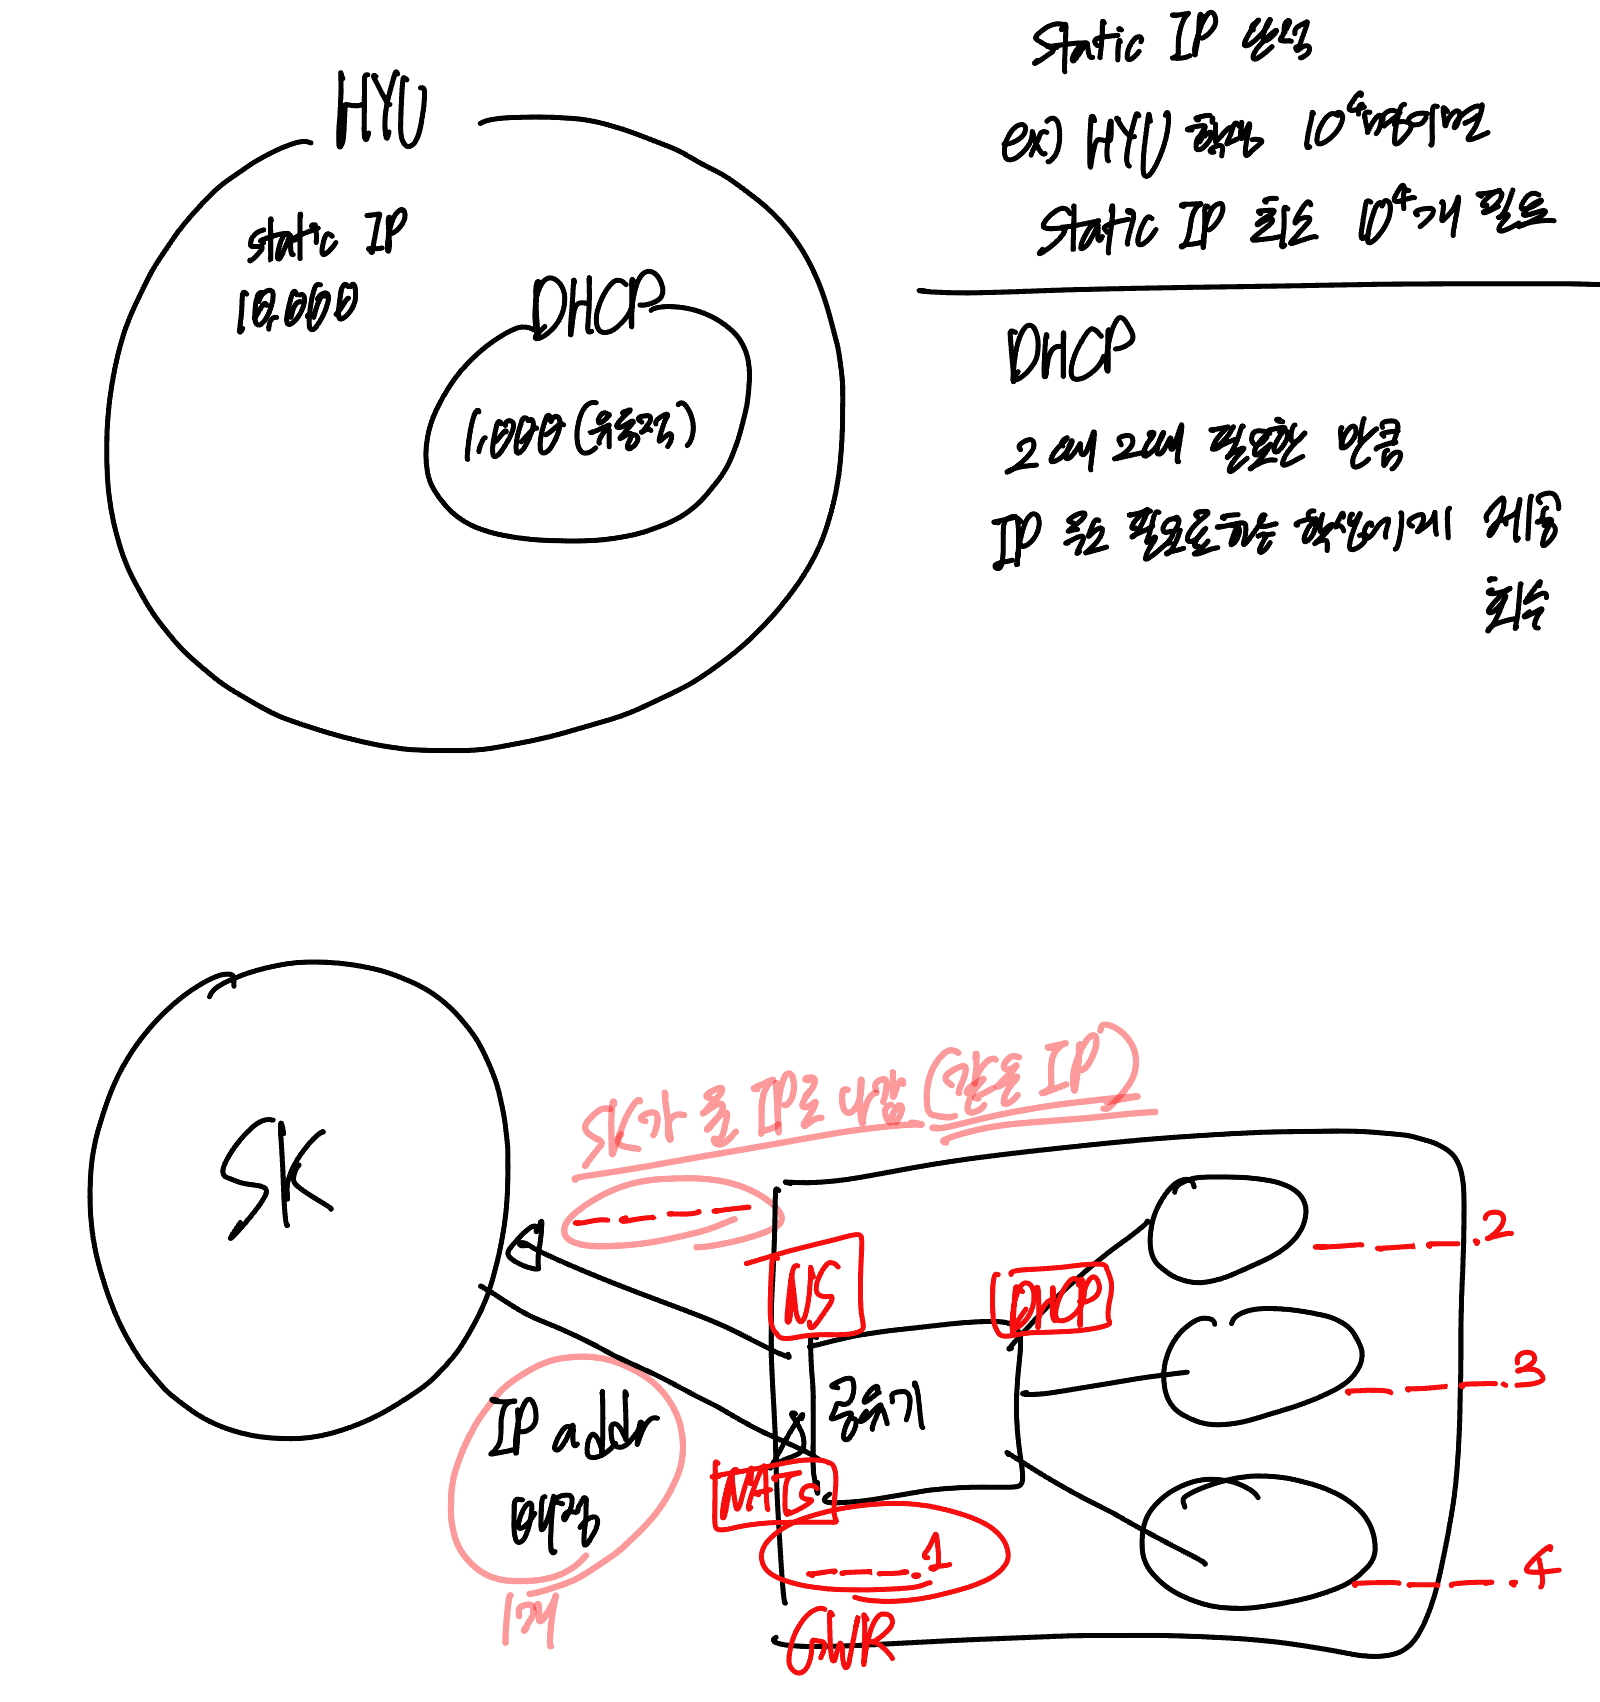 HYU
static IP
10,000
DHCP
1,000 (유동적)
Static IP 단점
ex) HYU 학생 10⁴명이면
Static IP 최소 10⁴개 필요
DHCP
그때 그때 필요한 만큼
IP 주소 필요로하는 학생에게 제공
회수
SK
SK가 준 IP로 나감 (같은 IP)
_ _ _ _
NS
DHCP
공유기
NATs
_ _ _.1
GWR
IP addr
매정
1개
_ _ _.2
_ _ _.3
_ _ _.4